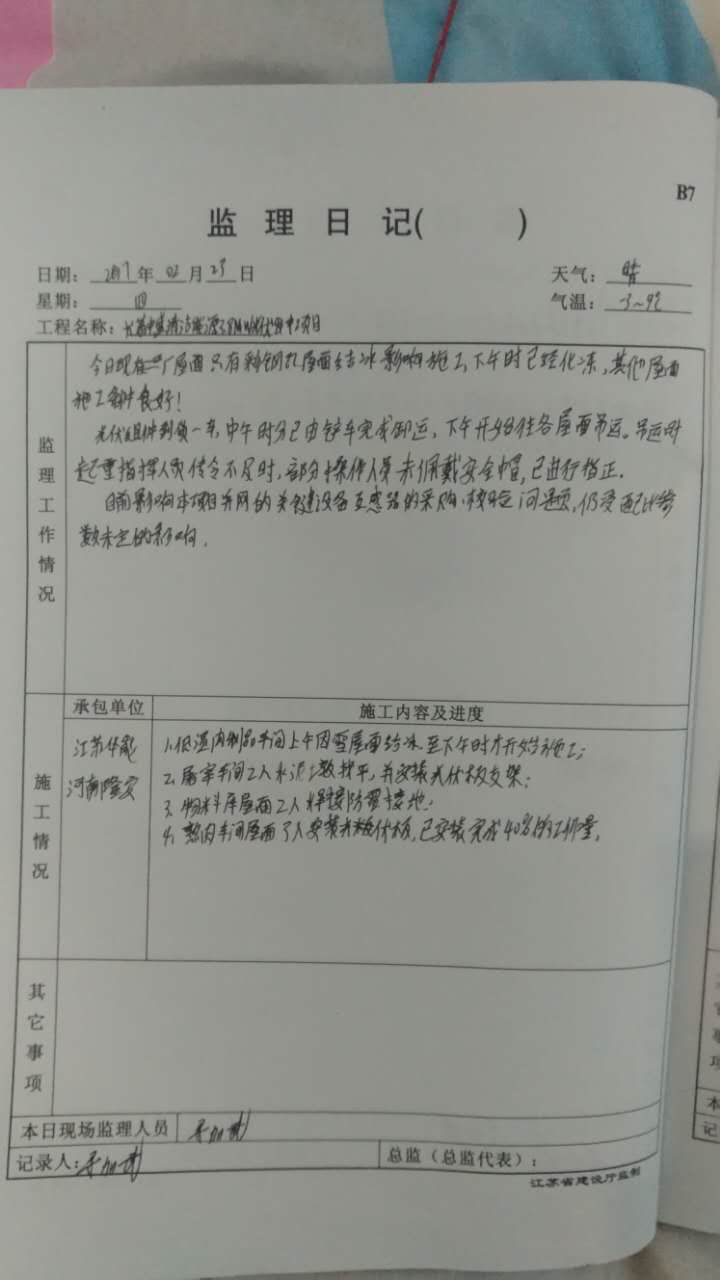 B7
监 理 日 记( )
日期: 2017 年 02 月 23 日 天气: 晴
星期: 四 气温: -3~9℃
工程名称: 清洁能源 项目
监理工作情况
今日现在二厂屋面只有彩钢瓦屋面结冰影响施工,下午时已经化冻,其他屋面
施工条件良好!
光伏组件到货一车,中午时分已由铲车完成卸运,下午开始往各屋面吊运。吊运时
起重指挥人员传令不及时,部分操作人员未佩戴安全帽,已进行指正.
目前影响本项目并网的关键设备互感器的采购、校验问题,仍受配比参
数未定的影响.
施工情况
承包单位 施工内容及进度
江苏华能
河南隆安
1.低温肉制品车间上午因雪屋面结冰至下午时才开始施工;
2.屠宰车间2人水泥墩找平,并安装光伏板支架;
3.物料库屋面2人焊接防雷接地;
4.熟肉车间屋面7人安装光伏板,已安装完成40%的工作量.
其它事项
本日现场监理人员
记录人: 总监(总监代表):
江苏省建设厅监制